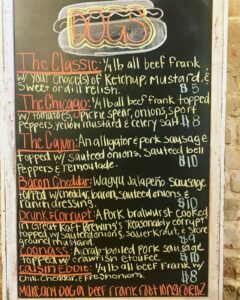 DOGS
The Classic: 1/4lb all beef frank
w/ your choice(s) of Ketchup, mustard, &
Sweet or dill relish. $5
The Chicago: 1/4lb all beef frank topped
w/ tomatoes, pickle spear, onions, sport
peppers, yellow mustard & celery salt. $8
The Cajun: An alligator & pork sausage
topped w/ sauteed onions, sauteed bell
peppers & remoulade. $10
Bacon Cheddar: Wagyu Jalapeño Sausage
topped w/ cheddar, bacon, sauteed onions, &
ranch dressing. $10
Drunk & Corrupt: A pork bratwurst cooked
in Great Raft Brewing's Reasonably Corrupt
topped w/ sauteed onions, sauerkraut, &
ground mustard. $9
Coonass: A crab-boiled pork sausage
topped w/ crawfish etouffee. $10
Cousin Eddie: 1/4lb all beef frank w/
chili, cheddar, & fresh onions. $8
Make any dog a beef frank foot long for $2